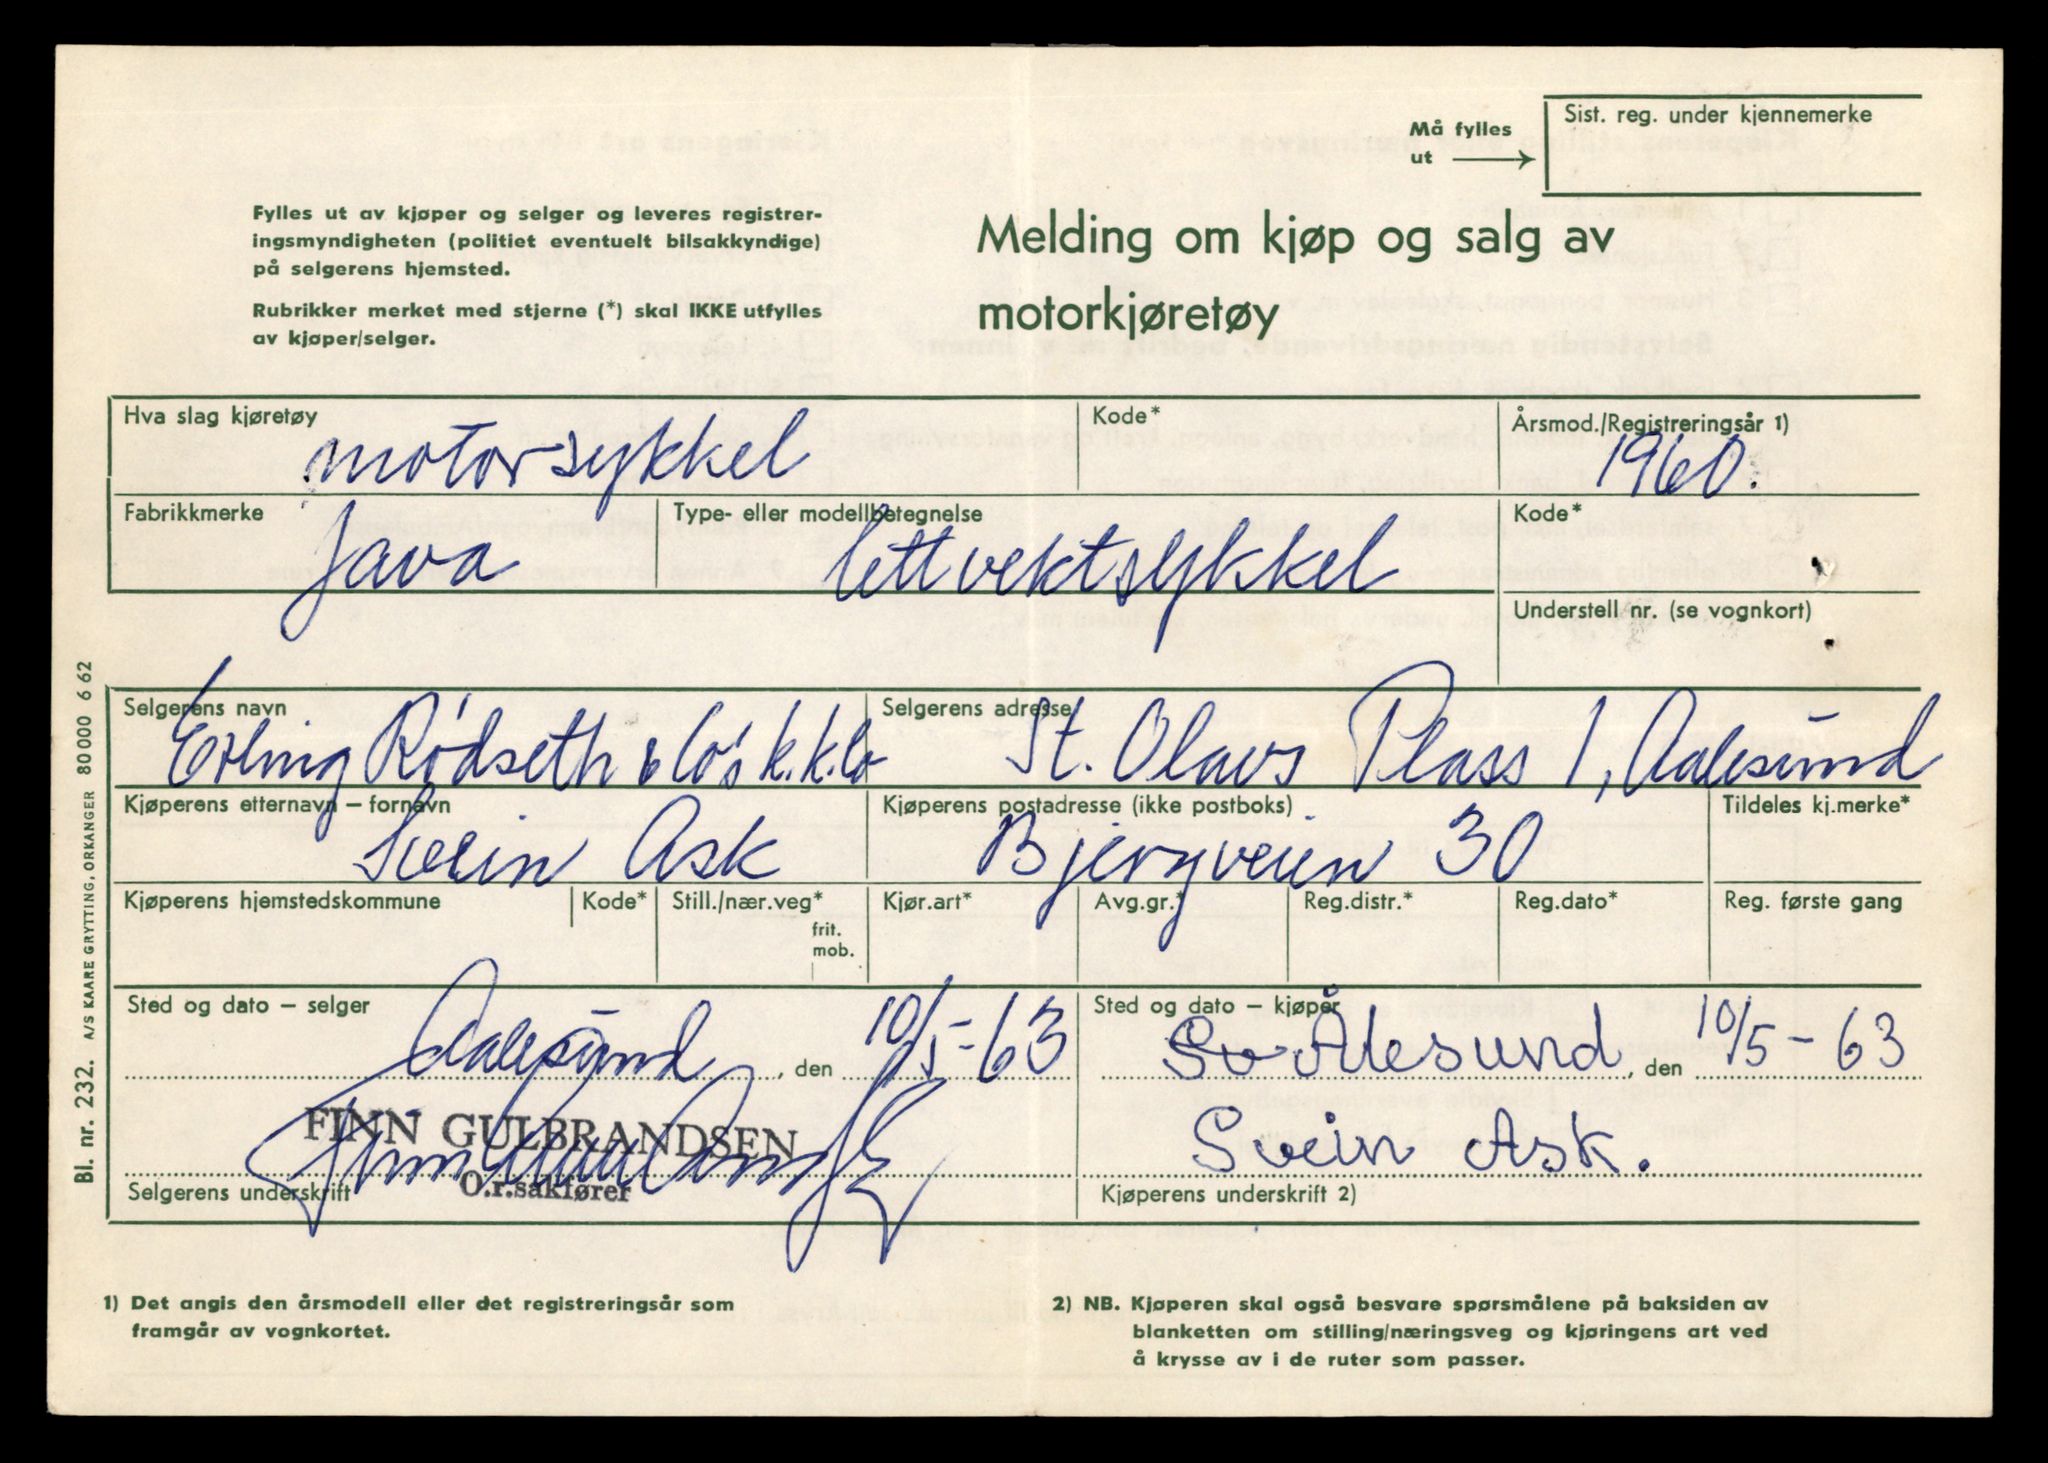 Må fylles ut
Sist. reg. under kjennemerke
Fylles ut av kjøper og selger og leveres registrer-
ingsmyndigheten (politiet eventuelt bilsakkyndige)
på selgerens hjemsted.
Rubrikker merket med stjerne (*) skal IKKE utfylles
av kjøper/selger.
Melding om kjøp og salg av
motorkjøretøy
Hva slag kjøretøy
motorsykkel
Kode*
Årsmod./Registreringsår 1)
1960.
Fabrikkmerke
Java
Type- eller modellbetegnelse
lettvektsykkel
Kode*
Understell nr. (se vognkort)
Selgerens navn
Erling Rødseth & Co's k.k.bo
Selgerens adresse
St. Olavs Plass 1, Aalesund
Kjøperens etternavn — fornavn
Svein Ask
Kjøperens postadresse (ikke postboks)
Bjergveien 30
Tildeles kj.merke*
Kjøperens hjemstedskommune
Kode*
Still./nær.veg*
frit.
mob.
Kjør.art*
Avg.gr.*
Reg.distr.*
Reg.dato*
Reg. første gang
Sted og dato — selger
Aalesund, den 10/5-63
FINN GULBRANDSEN
O.r.sakfører
Selgerens underskrift
Sted og dato — kjøper
Sv Ålesund, den 10/5-63
Svein Ask.
Kjøperens underskrift 2)
1) Det angis den årsmodell eller det registreringsår som
framgår av vognkortet.
2) NB. Kjøperen skal også besvare spørsmålene på baksiden av
blanketten om stilling/næringsveg og kjøringens art ved
å krysse av i de ruter som passer.
Bl. nr. 232. A/S KAARE GRYTTING, ORKANGER 80000 6 62